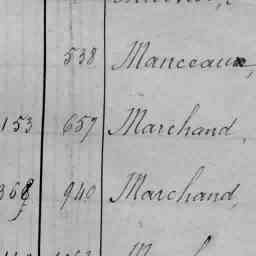 538 Manceaux,
153 657 Marchand,
368 940 Marchand,